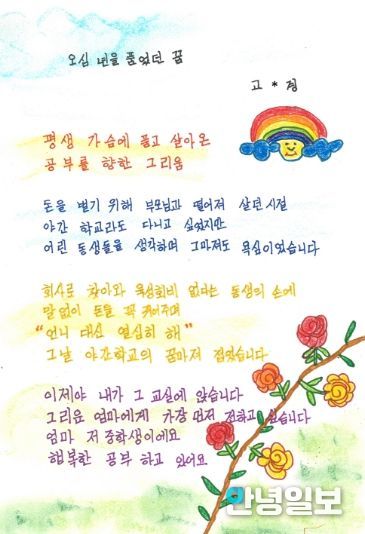 오십 년을 품었던 꿈
고 * 정
평생 가슴에 품고 살아온
공부를 향한 그리움
돈을 벌기 위해 부모님과 떨어져 살던 시절
야간 학교라도 다니고 싶었지만
어린 동생들을 생각하며 그마저도 욕심이었습니다
회사로 찾아와 육성회비 없다는 동생의 손에
말없이 돈을 꼭 쥐어주며
"언니 대신 열심히 해"
그날 야간학교의 꿈마저 접었습니다
이제야 내가 그 교실에 앉습니다
그리운 엄마에게 가장 먼저 전하고 싶습니다
엄마 저 중학생이에요
행복한 공부 하고 있어요
안녕일보